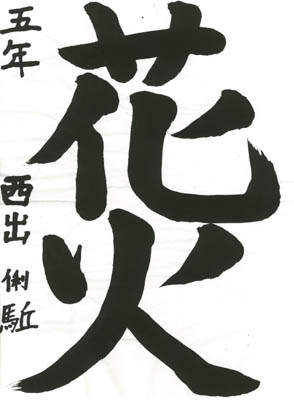 花火
五年 西出 俐駈